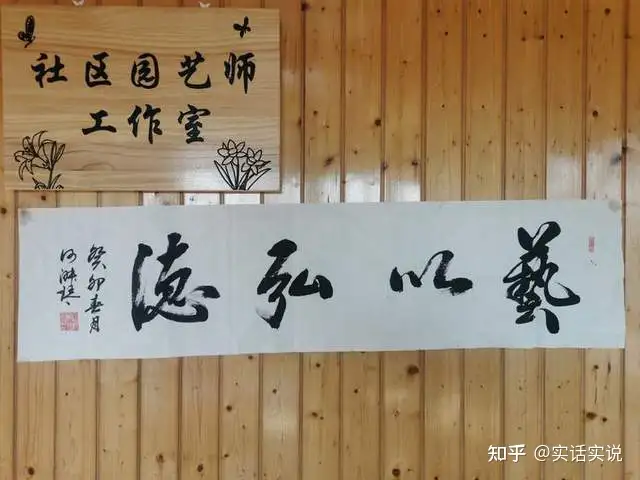 社区园艺师
工作室
藝以弘德
癸卯春月
知乎 @实话实说